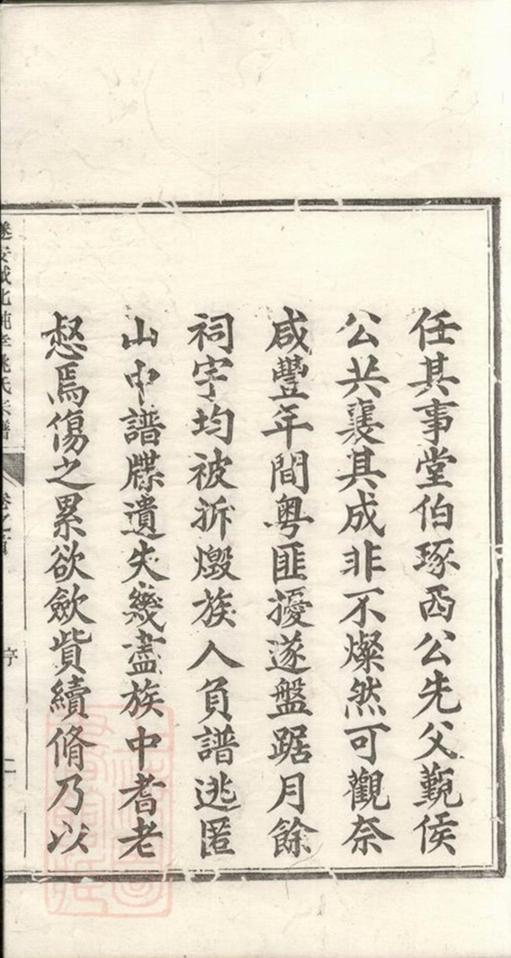 任其事堂伯琢西公先父覲侯
公共襄其成非不燦然可觀奈
咸豐年間粤匪擾遂盤踞月餘
祠宇均被拆燬族人負譜逃匿
山中譜牒遺失幾盡族中耆老
惄焉傷之累欲歛貲續脩乃以
遂安城北純孝姚氏宗譜 卷之首 序 二